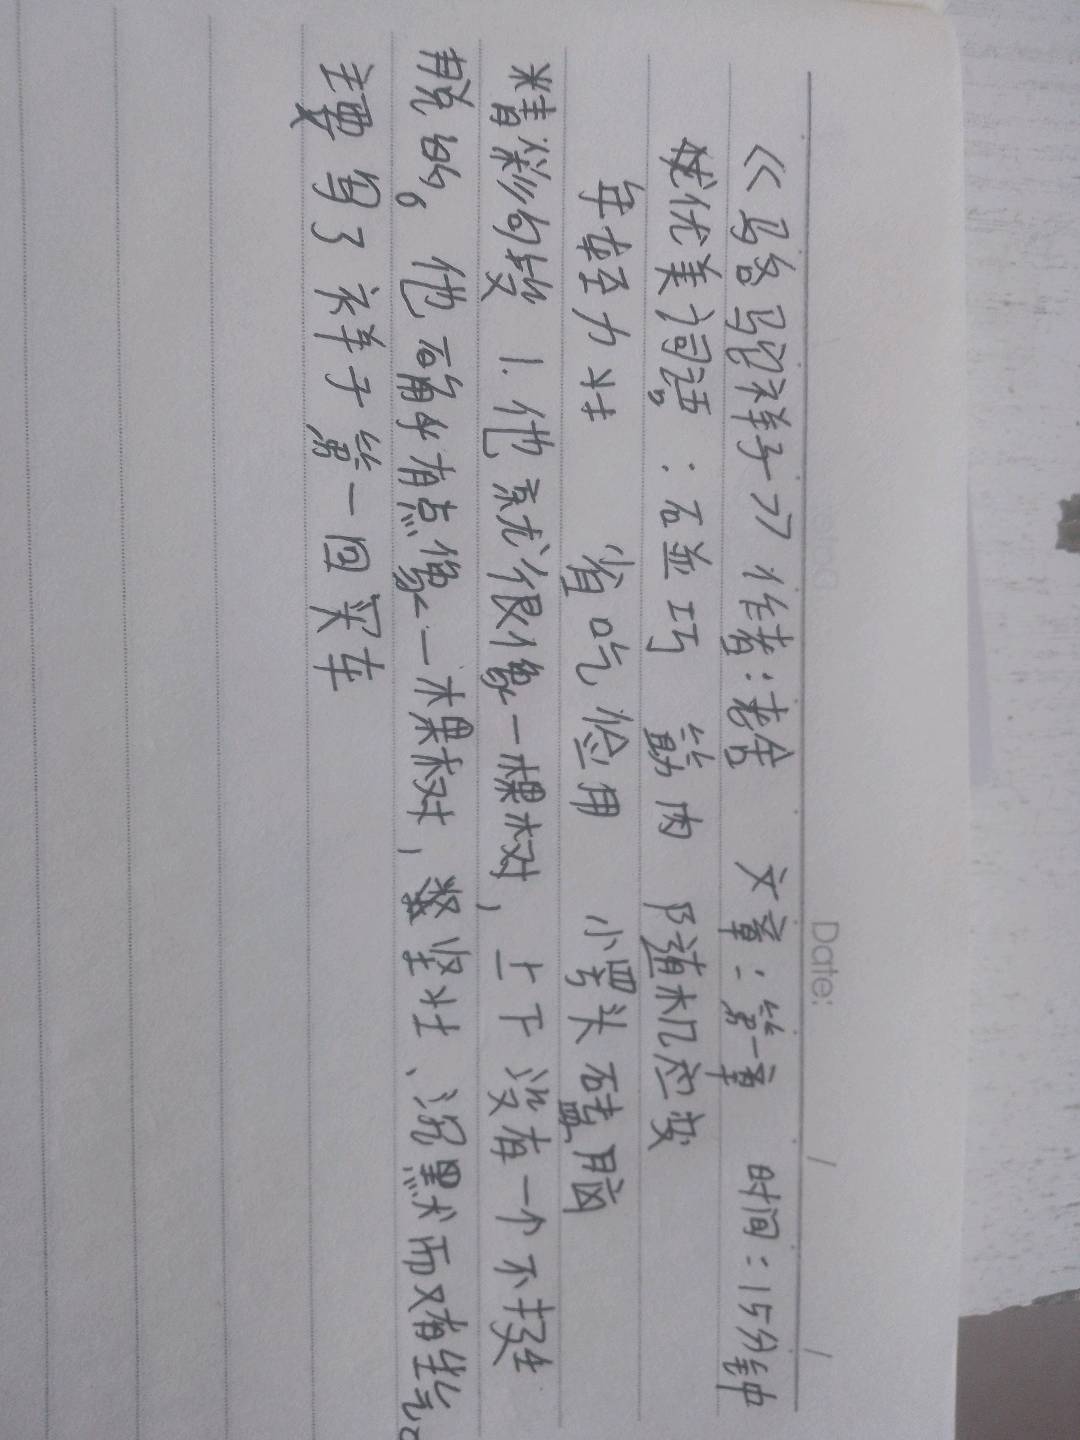 Date: / /
《骆驼祥子》 作者：老舍 文章：第一章 时间：15分钟
优美词语：石並巧 筋肉 随机应变
年轻力壮 省吃俭用 小罢头 硅脑
精彩句段 1.他就很像一棵树，上下没有一个不挺
脱的。他确乎有点像一棵树，坚壮、沉默而又有生气。
主要写了祥子第一回买车